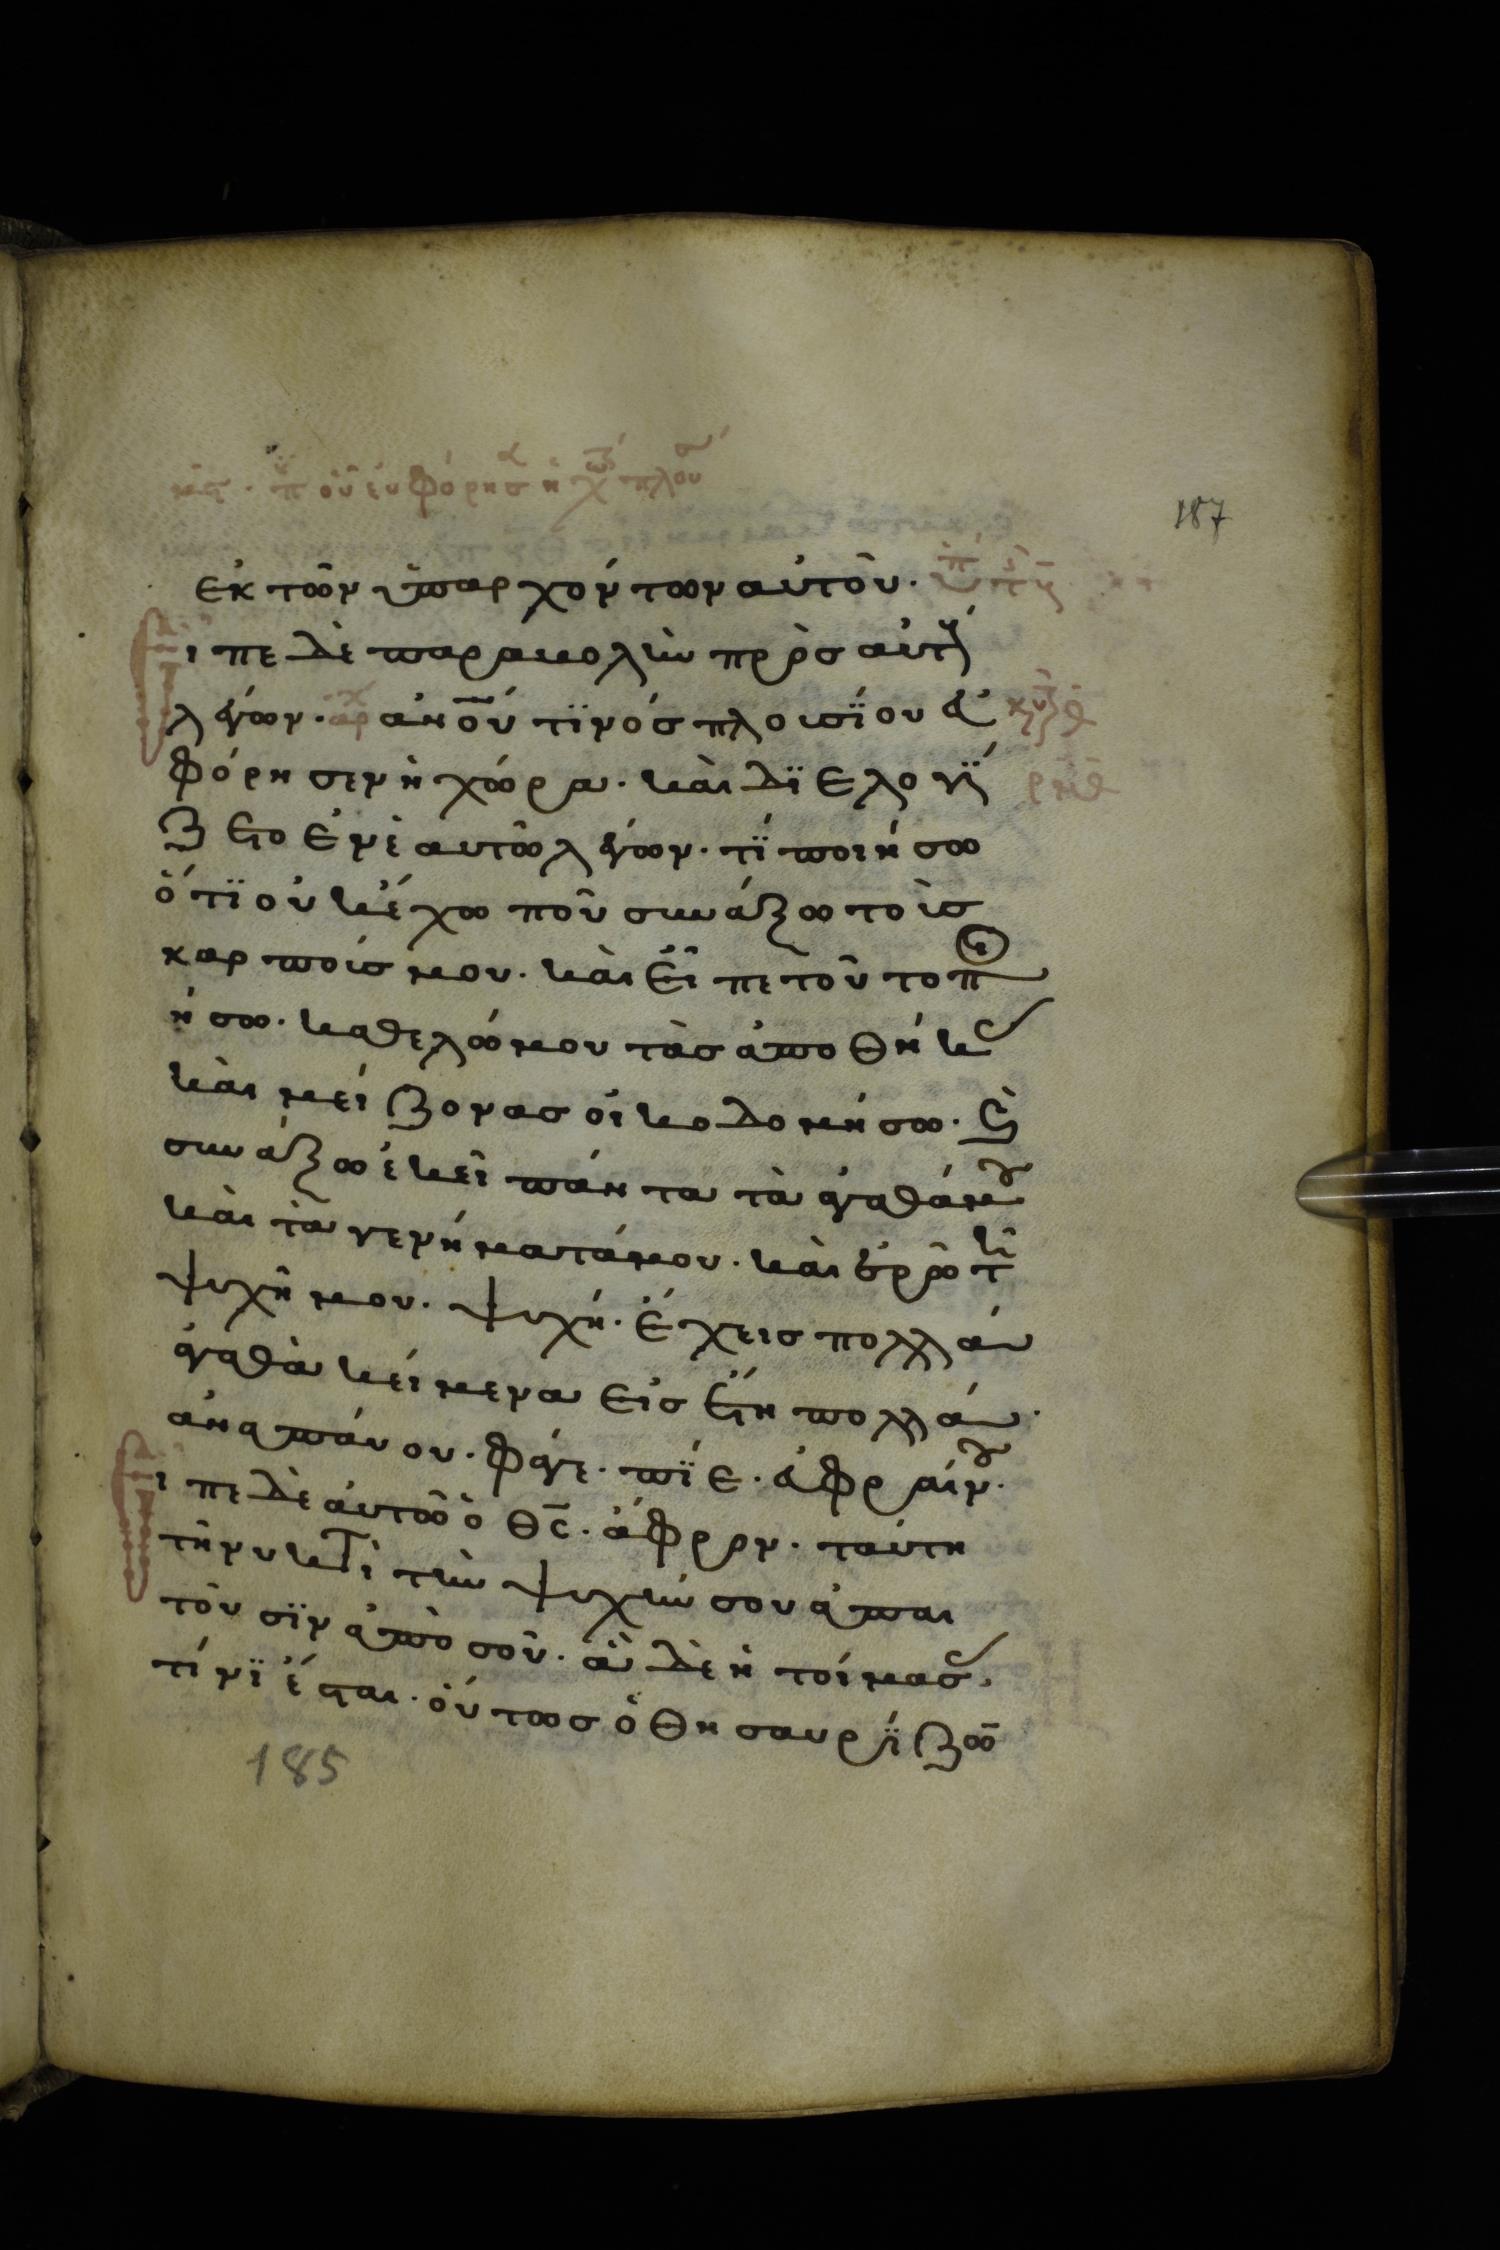 187
ἐκ τῶν ὑπαρχόντων αὐτοῦ·
εἶπε δὲ παραβολὴν πρὸς αὐτ
λέγων· ἀνοῦ τϊνόσ πλουσΐου εὐ
φόρησεν ἡ χώρα· καὶ δϊελογΐ
ζετο ἐν ἑαυτῶ λέγων· τΐ ποιήσω
ὅτϊ οὐκ ἔχω ποῦ συνάξω τοὺσ
καρπούσ μου· καὶ εἶπε τοῦτο π
ήσω· καθελῶ μου τὰσ ἀποθήκ
καὶ μείζονασ οἰκοδομήσω· ϗ
συνάξω ἐκεῖ πάντα τὰ ἀγαθάμου
καὶ τὰ γενήματάμου· καὶ ἐρῶ τῆ
ψυχῆ μου· ψυχή· ἔχεισ πολλὰ
ἀγαθὰ κείμενα εἰσ ἔτη πολλά·
ἀναπάυου· φάγε· πΐε· εὐφραίνου·
εἶπε δὲ ἀυτῶ ὁ θς· ἄφρον· ταύτη
τῆ νυκτὶ τὴν ψυχήν σου ἀπαι
τοῦσϊν ἀπὸ σοῦ· ἃ δὲ ἡτοίμασ
τίνϊ ἔσται· οὕτωσ ὁ θησαυρΐζω
185